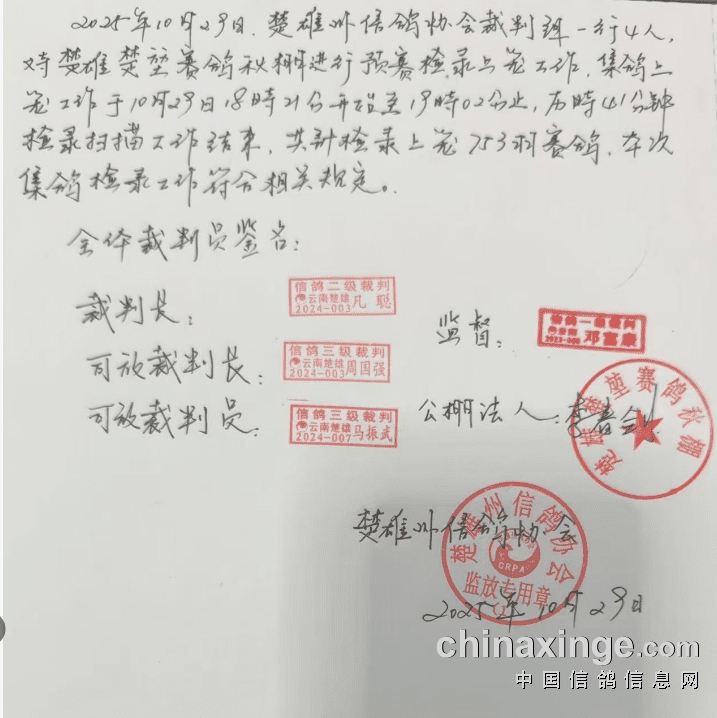 2025年10月29日，楚雄州信鸽协会裁判组一行4人，
对楚雄楚堃赛鸽秋棚进行预赛检录上笼工作，集鸽上
笼工作于10月29日18时21分开始至19时02分止，历时41分钟
检录扫描工作结束，共计检录上笼753羽赛鸽，本次
集鸽检录工作符合相关规定。
全体裁判员签名：
裁判长：
信鸽二级裁判
云南楚雄 凡聪
2024-003
监督：
信鸽一级裁判
邓富康
司放裁判长：
信鸽三级裁判
云南楚雄 周国强
2024-003
司放裁判员：
信鸽三级裁判
云南楚雄 马振武
2024-007
公棚法人：李春
楚雄楚堃赛鸽秋棚
楚雄州信鸽协会
楚雄州信鸽协会
CRPA
监放专用章
(1)
2025年10月29日
chinaxinge.com
中国信鸽信息网